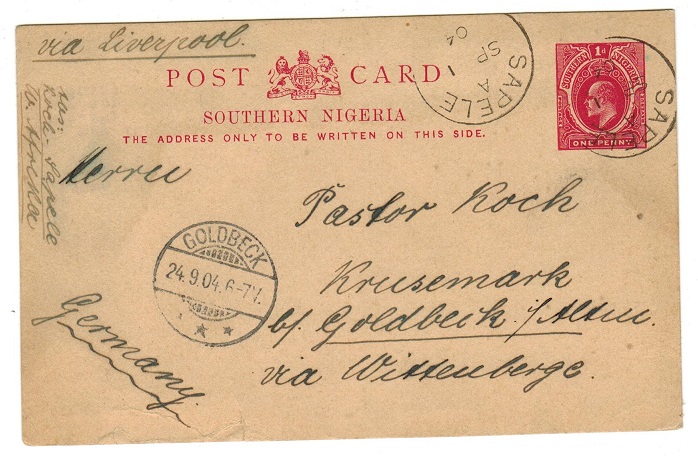 via Liverpool.
POST CARD
SOUTHERN NIGERIA
THE ADDRESS ONLY TO BE WRITTEN ON THIS SIDE.
SOUTHERN NIGERIA
1d
ONE PENNY
SAPELE
A
SP 1
04
SAPELE
Koch - Sapele
W. Afrika
Herrn
Pastor Koch
Krusemark
b/ Goldbeck i/Altm.
via Wittenberge.
Germany.
GOLDBECK
24.9.04.6-7V.